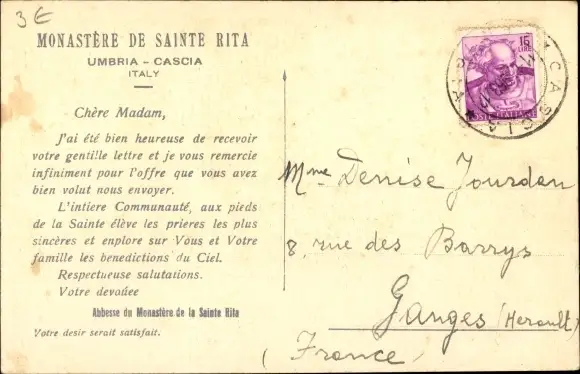 3€
MONASTÈRE DE SAINTE RITA
UMBRIA - CASCIA
ITALY
Chère Madam,
J'ai été bien heureuse de recevoir
votre gentille lettre et je vous remercie
infiniment pour l'offre que vous avez
bien volut nous envoyer.
L'intiere Communauté, aux pieds
de la Sainte élève les prieres les plus
sincères et enplore sur Vous et Votre
famille les benedictions du Ciel.
Respectueuse salutations.
Votre devouée
Abbesse du Monastère de la Sainte Rita
Votre desir serait satisfait.
15
LIRE
POSTE ITALIANE
CASCIA
Mme Denise Jourdan
8, rue des Barrys
Ganges (Herault)
(France)